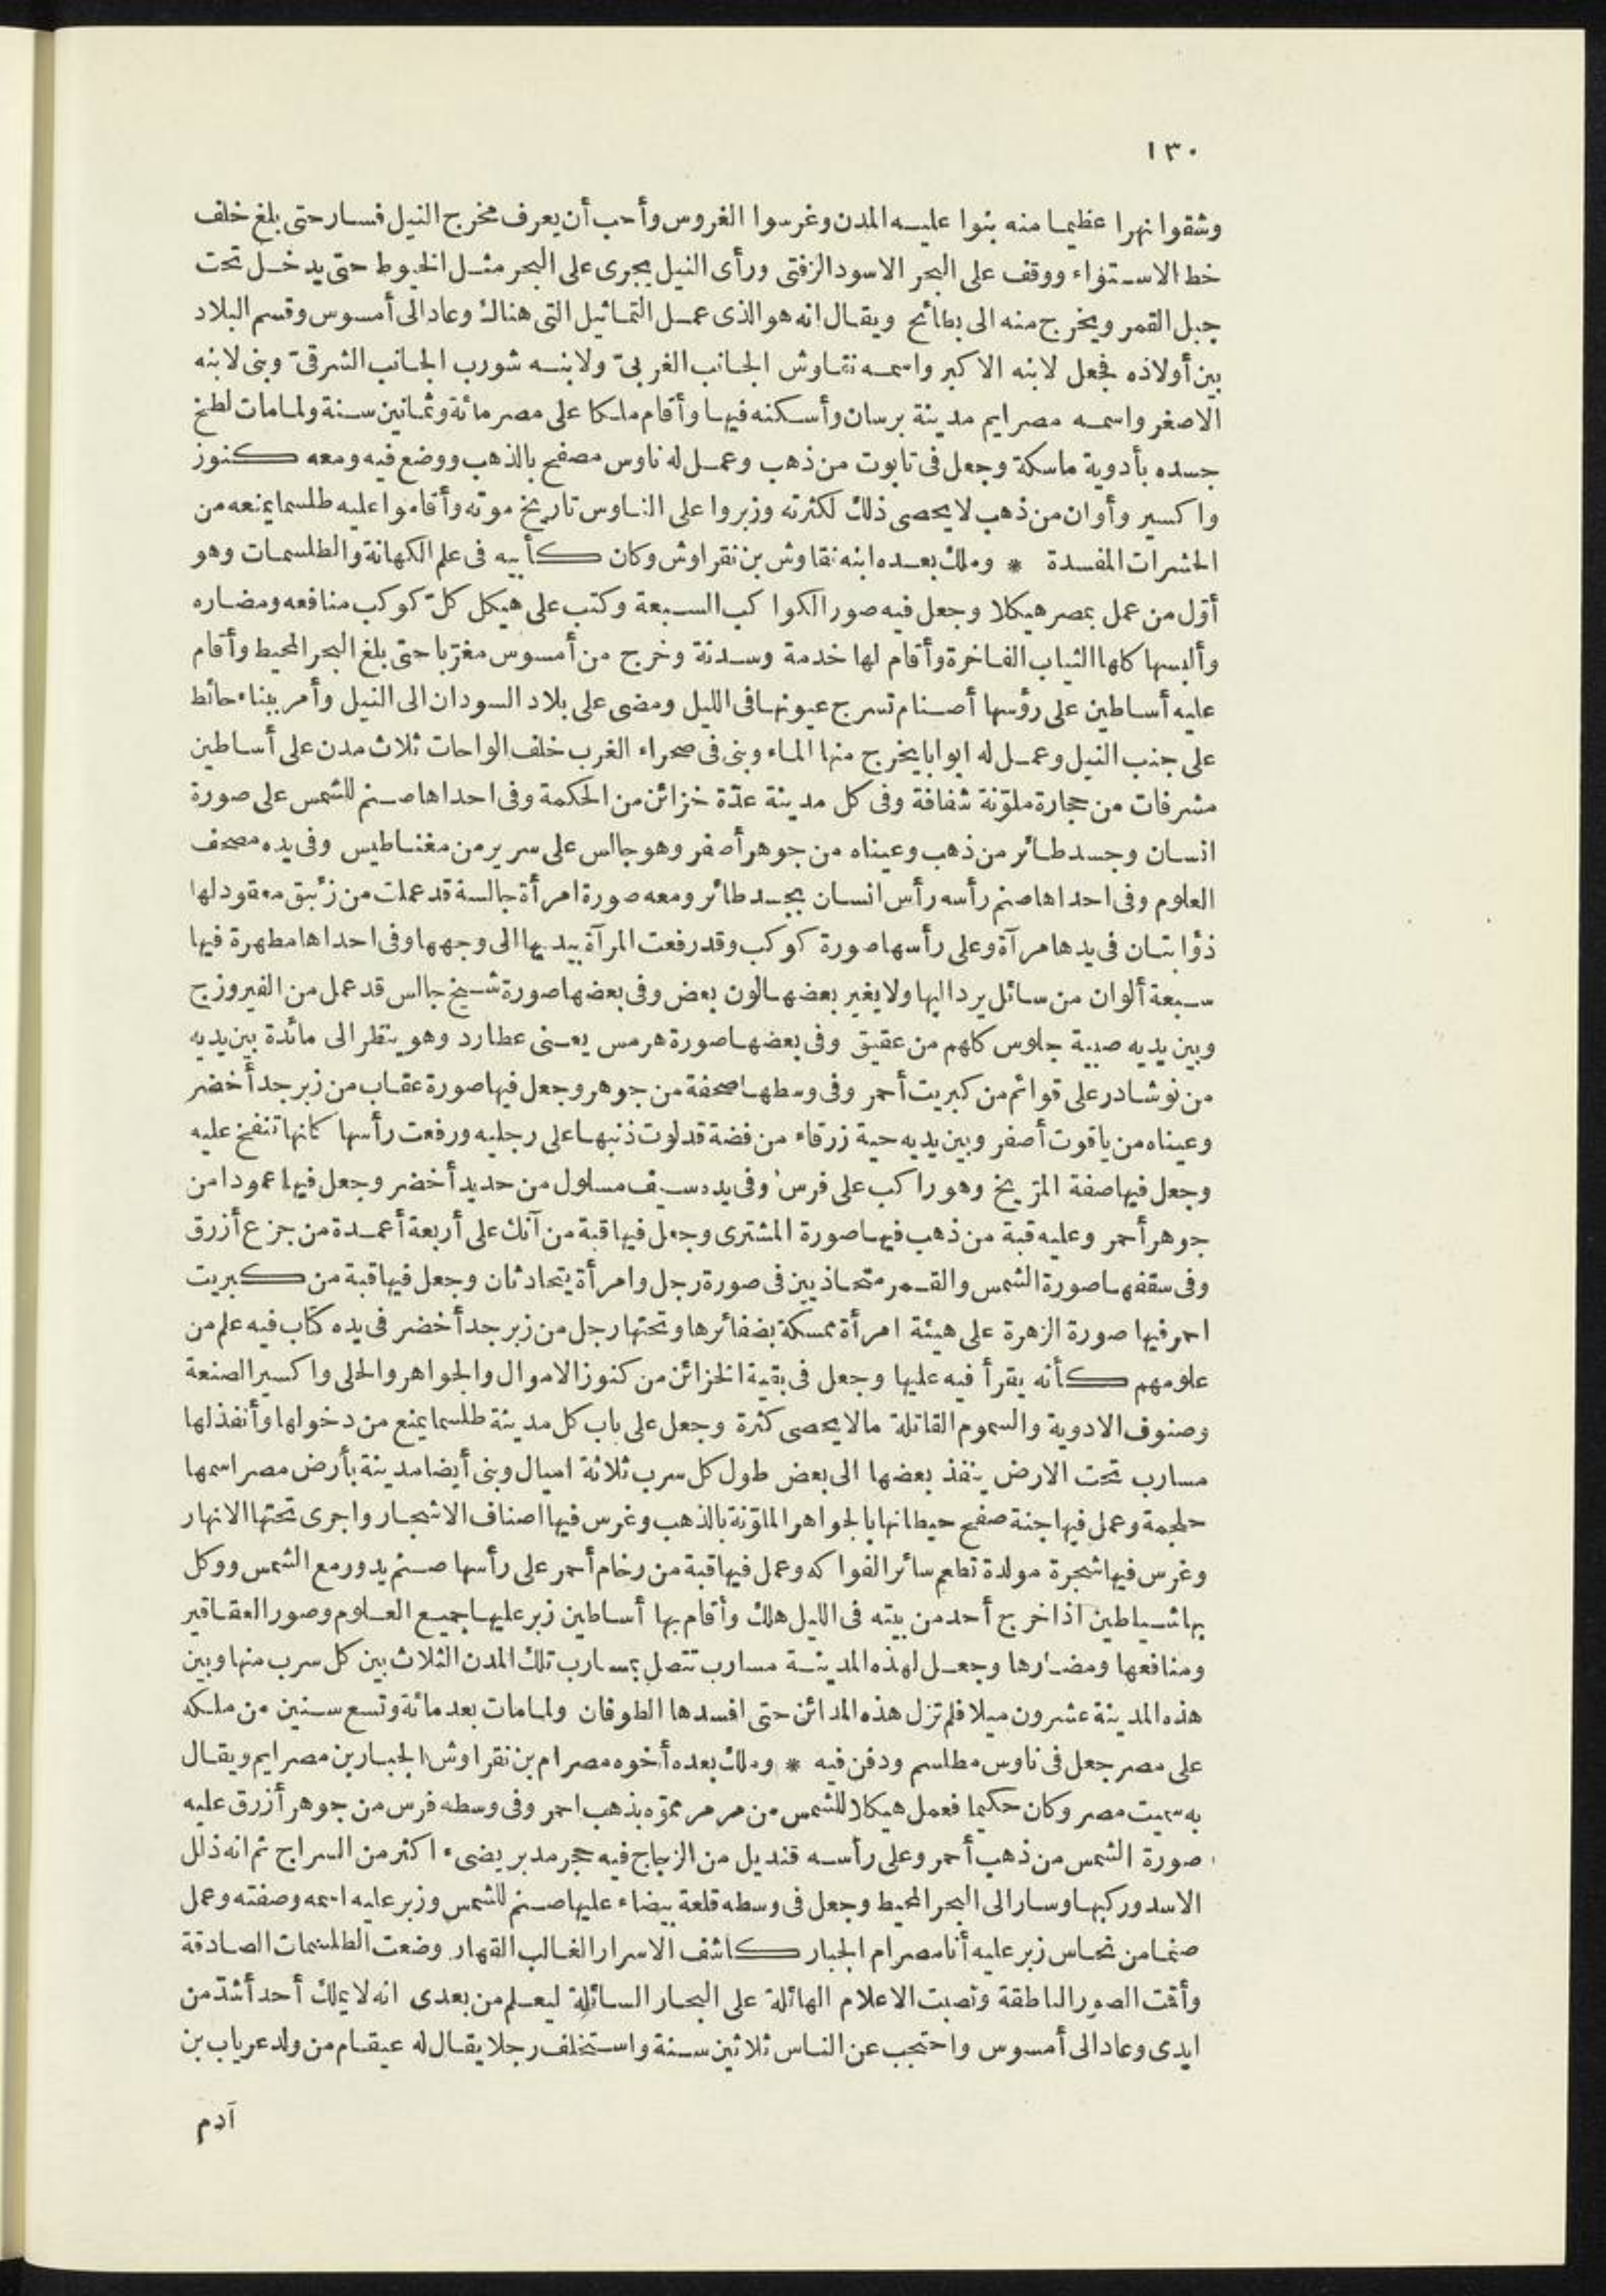 ١٣٠
وشقوا نهرا عظيما منه بنوا عليه المدن وغرسوا الغروس وأحب أن يعرف مخرج النيل فسار حتى بلغ خلف
خط الاستواء ووقف على البحر الاسود الزفتى ورأى النيل يجرى على البحر مثل الخيوط حتى يدخل تحت
جبل القمر ويخرج منه الى بطائح ويقال انه هو الذى عمل التماثيل التى هناك وعاد الى أمسوس وقسم البلاد
بين أولاده فجعل لابنه الاكبر واسمه نقاوش الجانب الغربىّ ولابنه شورب الجانب الشرقىّ وبنى لابنه
الاصغر واسمه مصرايم مدينة برسان وأسكنه فيها وأقام ملكا على مصر مائة وثمانين سنة ولما مات لطخ
جسده بأدوية ماسكة وجعل فى تابوت من ذهب وعمل له ناوس مصفح بالذهب ووضع فيه ومعه كنوز
واكسير وأوان من ذهب لا يحصى ذلك لكثرته وزبروا على الناوس تاريخ موته وأقاموا عليه طلسما يمنعه من
الحشرات المفسدة * وملك بعده ابنه نقاوش بن نقراوش وكان كأبيه فى علم الكهانة والطلسمات وهو
أوّل من عمل بمصر هيكلا وجعل فيه صور الكواكب السبعة وكتب على هيكل كلّ كوكب منافعه ومضاره
وألبسها كلها الثياب الفاخرة وأقام لها خدمة وسدنة وخرج من أمسوس مغرّبا حتى بلغ البحر المحيط وأقام
عليه أساطين على رؤسها أصنام تسرج عيونها فى الليل ومضى على بلاد السودان الى النيل وأمر ببناء حائط
على جنب النيل وعمل له ابوابا يخرج منها الماء وبنى فى صحراء الغرب خلف الواحات ثلاث مدن على أساطين
مشرفات من حجارة ملوّنة شفافة وفى كل مدينة عدّة خزائن من الحكمة وفى احداها صنم للشمس على صورة
انسان وجسد طائر من ذهب وعيناه من جوهر أصفر وهو جالس على سرير من مغناطيس وفى يده مصحف
العلوم وفى احداها صنم رأسه رأس انسان بجسد طائر ومعه صورة امرأة جالسة قد عملت من زئبق معقود لها
ذؤابتان فى يدها مرآة وعلى رأسها صورة كوكب وقد رفعت المرآة بيديها الى وجهها وفى احداها مطهرة فيها
سبعة ألوان من سائل يرد اليها ولا يغير بعضها لون بعض وفى بعضها صورة شيخ جالس قد عمل من الفيروزج
وبين يديه صبية جلوس كلهم من عقيق وفى بعضها صورة هرمس يعنى عطارد وهو ينظر الى مائدة بين يديه
من نوشادر على قوائم من كبريت أحمر وفى وسطها صحفة من جوهر وجعل فيها صورة عقاب من زبرجد أخضر
وعيناه من ياقوت أصفر وبين يديه حية زرقاء من فضة قد لوت ذنبها على رجليه ورفعت رأسها كانها تنفخ عليه
وجعل فيها صفة المرّيخ وهو راكب على فرس وفى يده سيف مسلول من حديد أخضر وجعل فيها عمودا من
جوهر أحمر وعليه قبة من ذهب فيها صورة المشترى وجعل فيها قبة من آنك على أربعة أعمدة من جزع أزرق
وفى سقفها صورة الشمس والقمر متحاذيين فى صورة رجل وامرأة يتحادثان وجعل فيها قبة من كبريت
احمر فيها صورة الزهرة على هيئة امرأة ممسكة بضفائرها وتحتها رجل من زبرجد أخضر فى يده كتاب فيه علم من
علومهم كأنه يقرأ فيه عليها وجعل فى بقية الخزائن من كنوز الاموال والجواهر والحلى واكسير الصنعة
وصنوف الادوية والسموم القاتلة مالا يحصى كثرة وجعل على باب كل مدينة طلسما يمنع من دخولها وأنفذلها
مسارب تحت الارض ينفذ بعضها الى بعض طول كل سرب ثلاثة اميال وبنى أيضا مدينة بأرض مصر اسمها
حلجمة وعمل فيها جنة صفح حيطانها بالجواهر الملوّنة بالذهب وغرس فيها اصناف الاشجار واجرى تحتها الانهار
وغرس فيها شجرة مولدة تطعم سائر الفواكه وعمل فيها قبة من رخام أحمر على رأسها صنم يدور مع الشمس ووكل
بها شياطين اذا خرج أحد من بيته فى الليل هلك وأقام بها أساطين زبر عليها جميع العلوم وصور العقاقير
ومنافعها ومضارها وجعل لهذه المدينة مسارب تتصل بمسارب تلك المدن الثلاث بين كل سرب منها وبين
هذه المدينة عشرون ميلا فلم تزل هذه المدائن حتى افسدها الطوفان ولما مات بعد مائة وتسع سنين من ملكه
على مصر جعل فى ناوس مطلسم ودفن فيه * وملك بعده أخوه مصرام بن نقراوش الجبار بن مصرايم ويقال
به سميت مصر وكان حكيما فعمل هيكلا للشمس من مرمر مموّه بذهب احمر وفى وسطه فرس من جوهر أزرق عليه
صورة الشمس من ذهب أحمر وعلى رأسه قنديل من الزجاج فيه حجر مدبر يضىء اكثر من السراج ثم انه ذلل
الاسد وركبها وسار الى البحر المحيط وجعل فى وسطه قلعة بيضاء عليها صنم للشمس وزبر عليه اسمه وصفته وعمل
صنما من نحاس زبر عليه أنا مصرام الجبار كاشف الاسرار الغالب القهار وضعت الطلسمات الصادقة
وأقت الصور الناطقة ونصبت الاعلام الهائلة على البحار السائلة ليعلم من بعدى انه لا يملك أحد أشدّ من
ايدى وعاد الى أمسوس واحتجب عن الناس ثلاثين سنة واستخلف رجلا يقال له عيقام من ولد عرياب بن
آدم